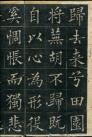 歸去來兮田園
將蕪胡不歸既
自以心為形役
奚惆悵而獨悲